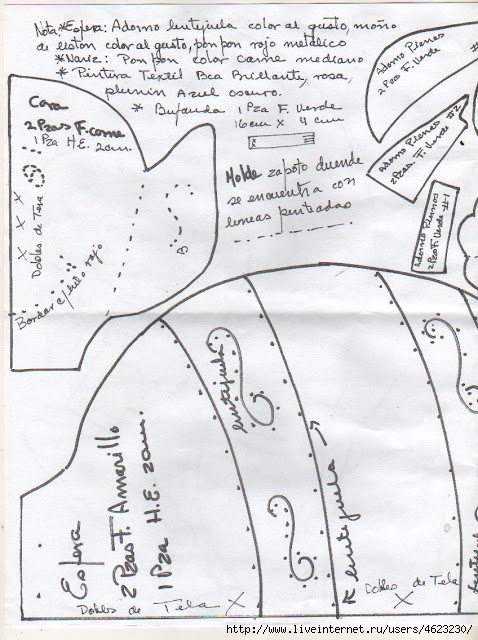 Nota: * Esfera: Adorno lentejuela color al gusto, moño
de liston color al gusto, pon pon rojo metalico
* Nariz: Pon pon color carne mediano
* Pintura Textil Bca Brillante, rosa,
plumin Azul oscuro.
* Bufanda 1 Pza F. Verde
16 cm x 4 cm
Cara
2 Pzas F. carne
1 Pza H.E. 2cm.
Dobles de Tela
Bordar c/ hilo rojo
Molde zapato duende
se encuentra con
lineas punteadas
Adorno Piernas
2 Pzas F. Verde
Adorno Piernas
2 Pzas. F. Verde #2
Adorno Piernas
2 Pza F. Verde #1
lentejuela
lentejuela
Esfera
2 Pzas F. Amarillo
1 Pza H.E. 2cm.
Dobles de Tela
Dobles de Tela
http://www.liveinternet.ru/users/4623230/